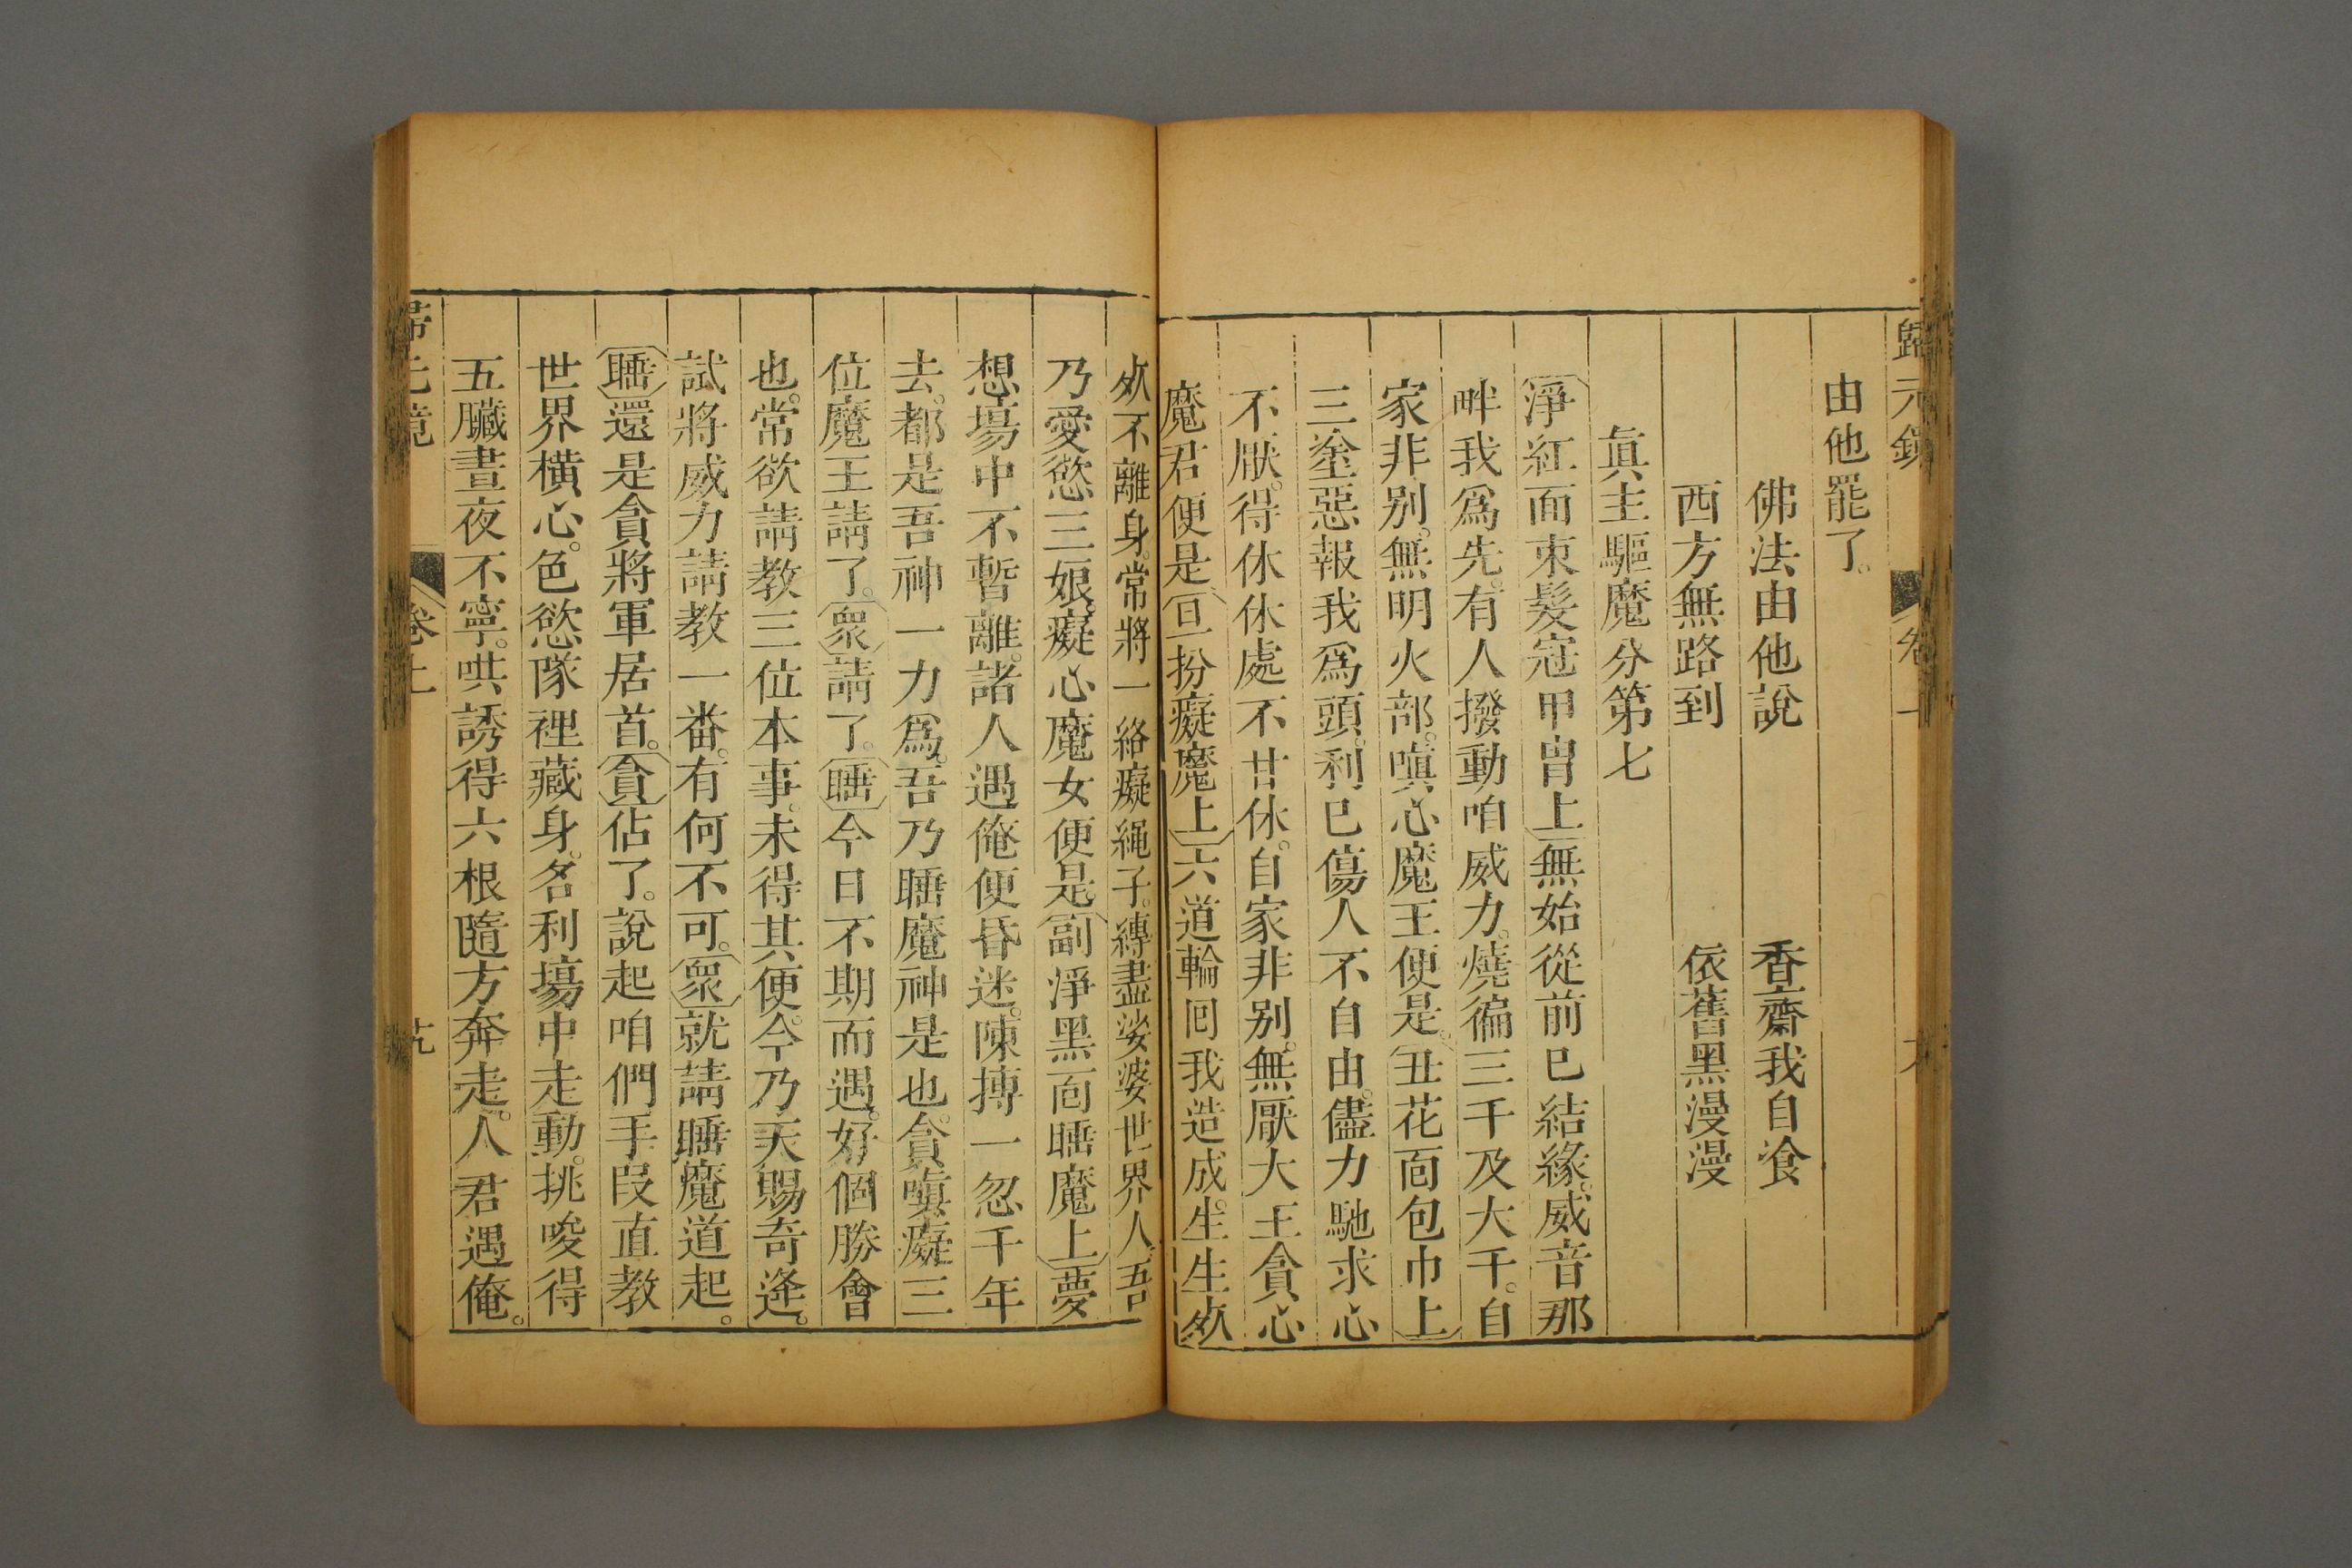 歸元鏡 卷上
由他罷了。
佛法由他說 香齋我自飡
西方無路到 依舊黑漫漫
眞主驅魔分第七
淨紅面束髮冠甲胄上無始從前已結緣。威音那
畔我爲先。有人撥動咱威力。燒徧三千及大千。自
家非别。無明火部。嗔心魔王便是。丑花面包巾上
三塗惡報我爲頭。利已傷人不自由。儘力馳求心
不厭。得休休處不甘休。自家非别。無厭大王貪心
魔君便是旦扮癡魔上六道輪囘我造成。生生死
死不離身。常將一絡癡繩子。縛盡娑婆世界人。吾
乃愛慾三娘。癡心魔女便是副淨黑面睡魔上夢
想塲中不暫離。諸人遇俺便昏迷。陳摶一忽千年
去。都是吾神一力爲。吾乃睡魔神是也。貪嗔癡三
位魔王請了。衆請了。睡今日不期而遇。好個勝會
也。常欲請教三位本事。未得其便。今乃天賜奇逢。
試將威力請教一番。有何不可。衆就請睡魔道起。
睡還是貪將軍居首。貪佔了。說起咱們手段直教
世界橫心。色慾隊裡藏身。名利塲中走動。挑唆得
五臟晝夜不寧。哄誘得六根隨方奔走。人君遇俺。
卷上